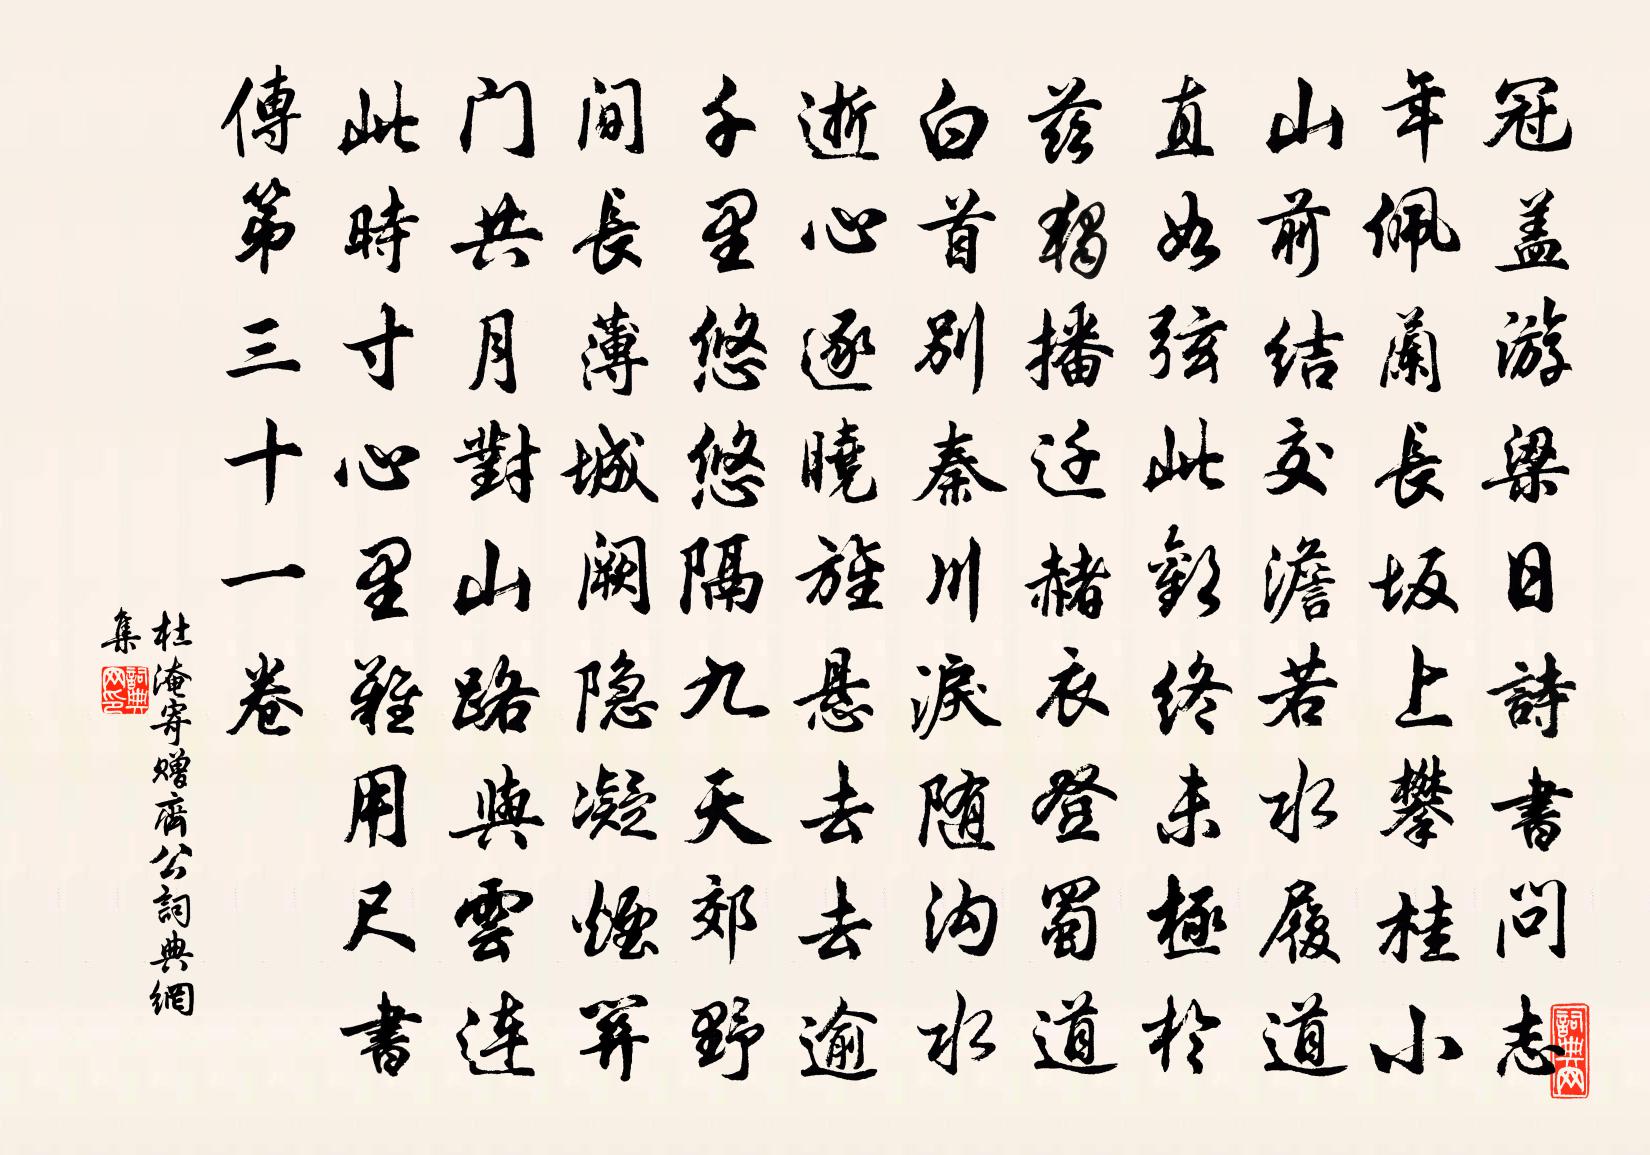 冠盖游梁日詩書問志
年佩蘭長坂上攀桂小
山前結交澹若水履道
直如弦此歡終未極於
兹獨播迁赭衣登蜀道
白首别秦川淚随沟水
逝心逐曉旌悬去去逾
千里悠悠隔九天郊野
间長薄城阙隐凝煙關
门共月對山路與雲连
此時寸心里難用尺書
傳第三十一卷
杜淹寄赠齊公詞典網
集
詞典网
詞典网印